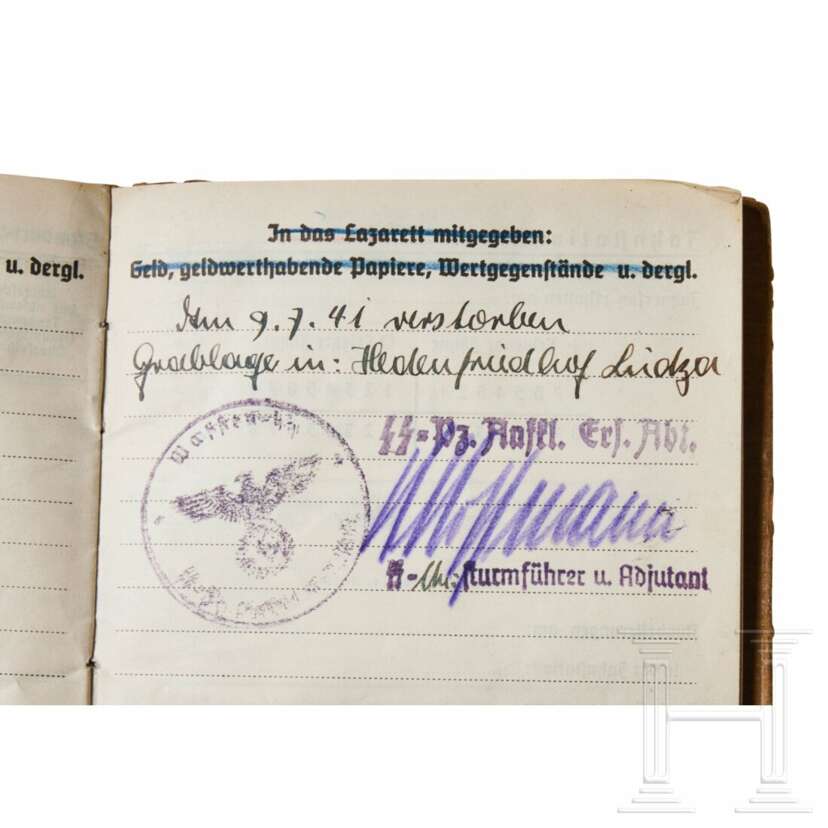 u. dergl.
In das Lazarett mitgegeben:
Geld, geldwerthabende Papiere, Wertgegenstände u. dergl.
Am 9.7.41 verstorben
Grablage in: Heldenfriedhof Ludza
Waffen-SS
SS-Pz. Aufkl. Ers. Abt.
SS-Unt.sturmführer u. Adjutant